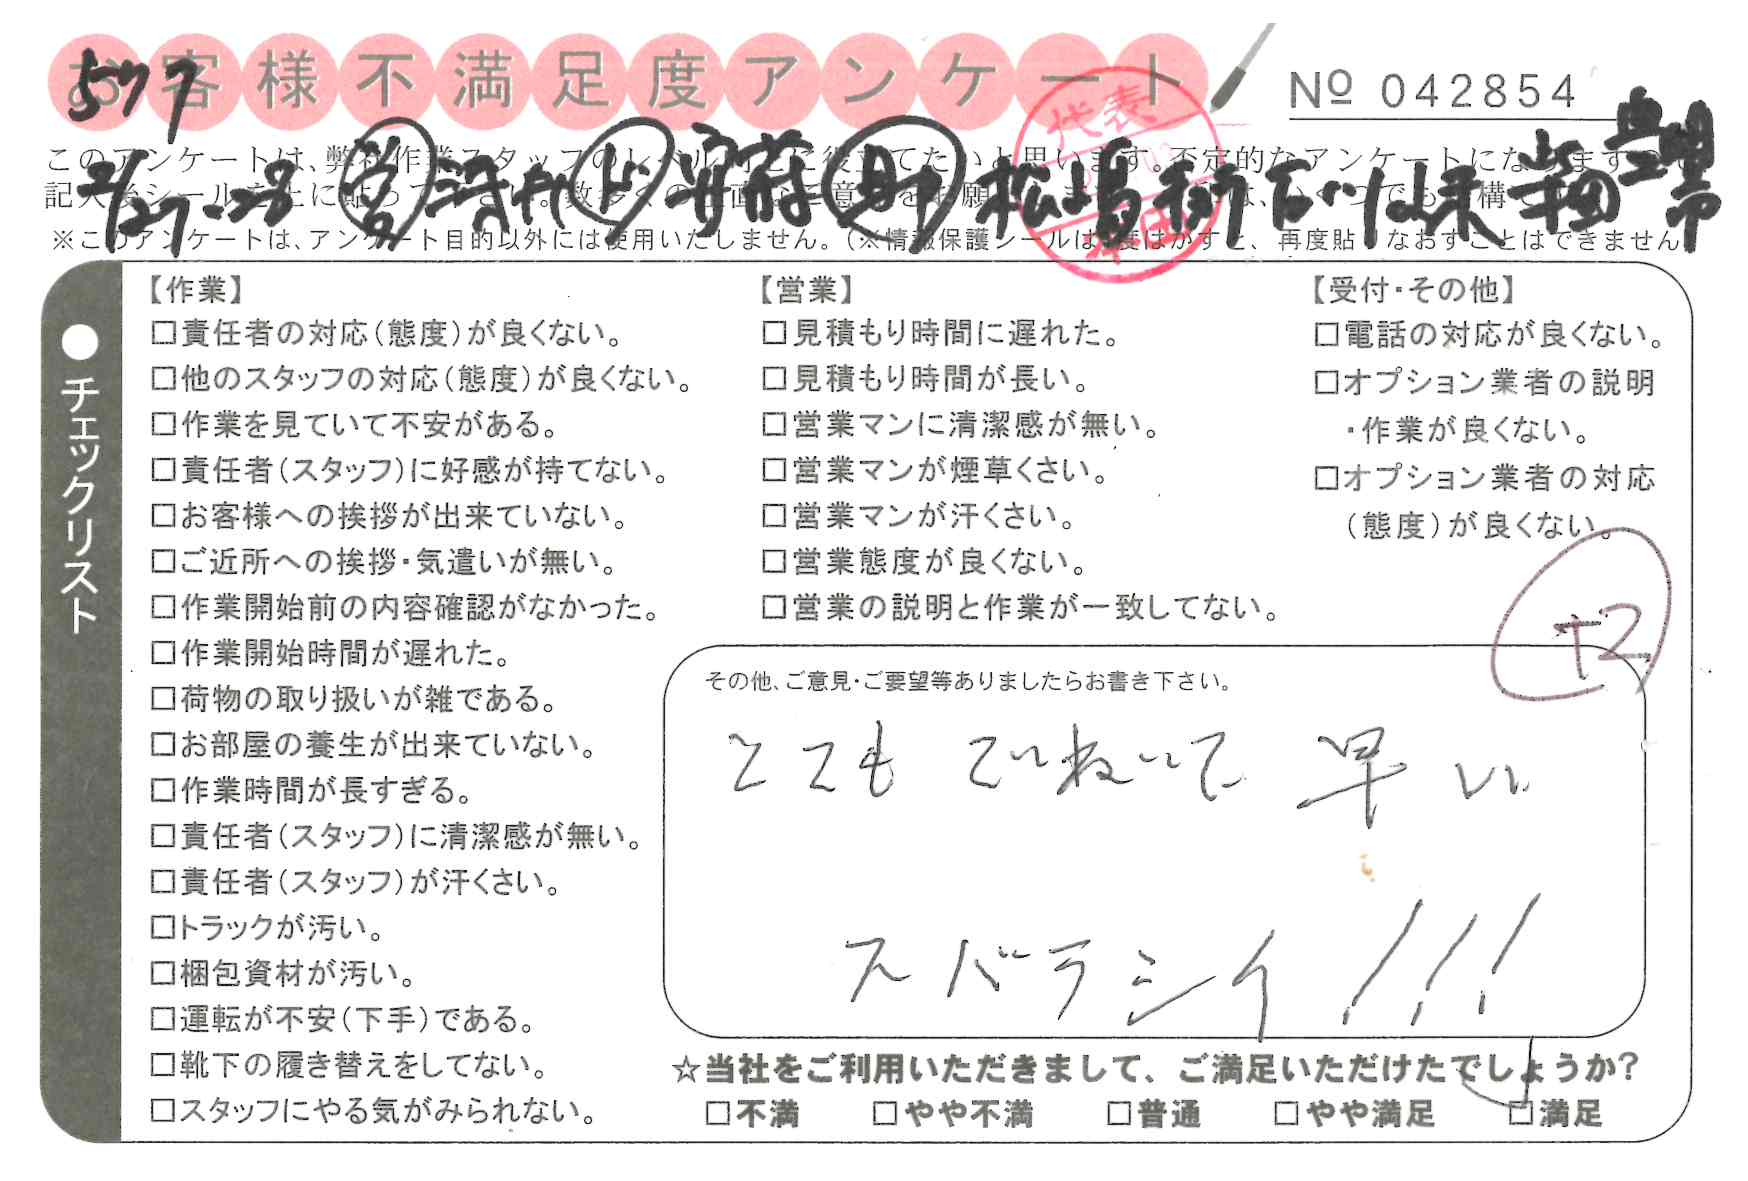 お客様不満足度アンケート
No 042854
577
2/27-28
※このアンケートは、アンケート目的以外には使用いたしません。(※情報保護シールは一度はがすと、再度貼りなおすことはできません
●チェックリスト
【作業】
□責任者の対応(態度)が良くない。
□他のスタッフの対応(態度)が良くない。
□作業を見ていて不安がある。
□責任者(スタッフ)に好感が持てない。
□お客様への挨拶が出来ていない。
□ご近所への挨拶・気遣いが無い。
□作業開始前の内容確認がなかった。
□作業開始時間が遅れた。
□荷物の取り扱いが雑である。
□お部屋の養生が出来ていない。
□作業時間が長すぎる。
□責任者(スタッフ)に清潔感が無い。
□責任者(スタッフ)が汗くさい。
□トラックが汚い。
□梱包資材が汚い。
□運転が不安(下手)である。
□靴下の履き替えをしてない。
□スタッフにやる気がみられない。
【営業】
□見積もり時間に遅れた。
□見積もり時間が長い。
□営業マンに清潔感が無い。
□営業マンが煙草くさい。
□営業マンが汗くさい。
□営業態度が良くない。
□営業の説明と作業が一致してない。
【受付・その他】
□電話の対応が良くない。
□オプション業者の説明
・作業が良くない。
□オプション業者の対応
(態度)が良くない。
+2
その他、ご意見・ご要望等ありましたらお書き下さい。
とてもていねいで 早い
スバラシイ!!!
☆当社をご利用いただきまして、ご満足いただけたでしょうか?
□不満 □やや不満 □普通 □やや満足 □満足